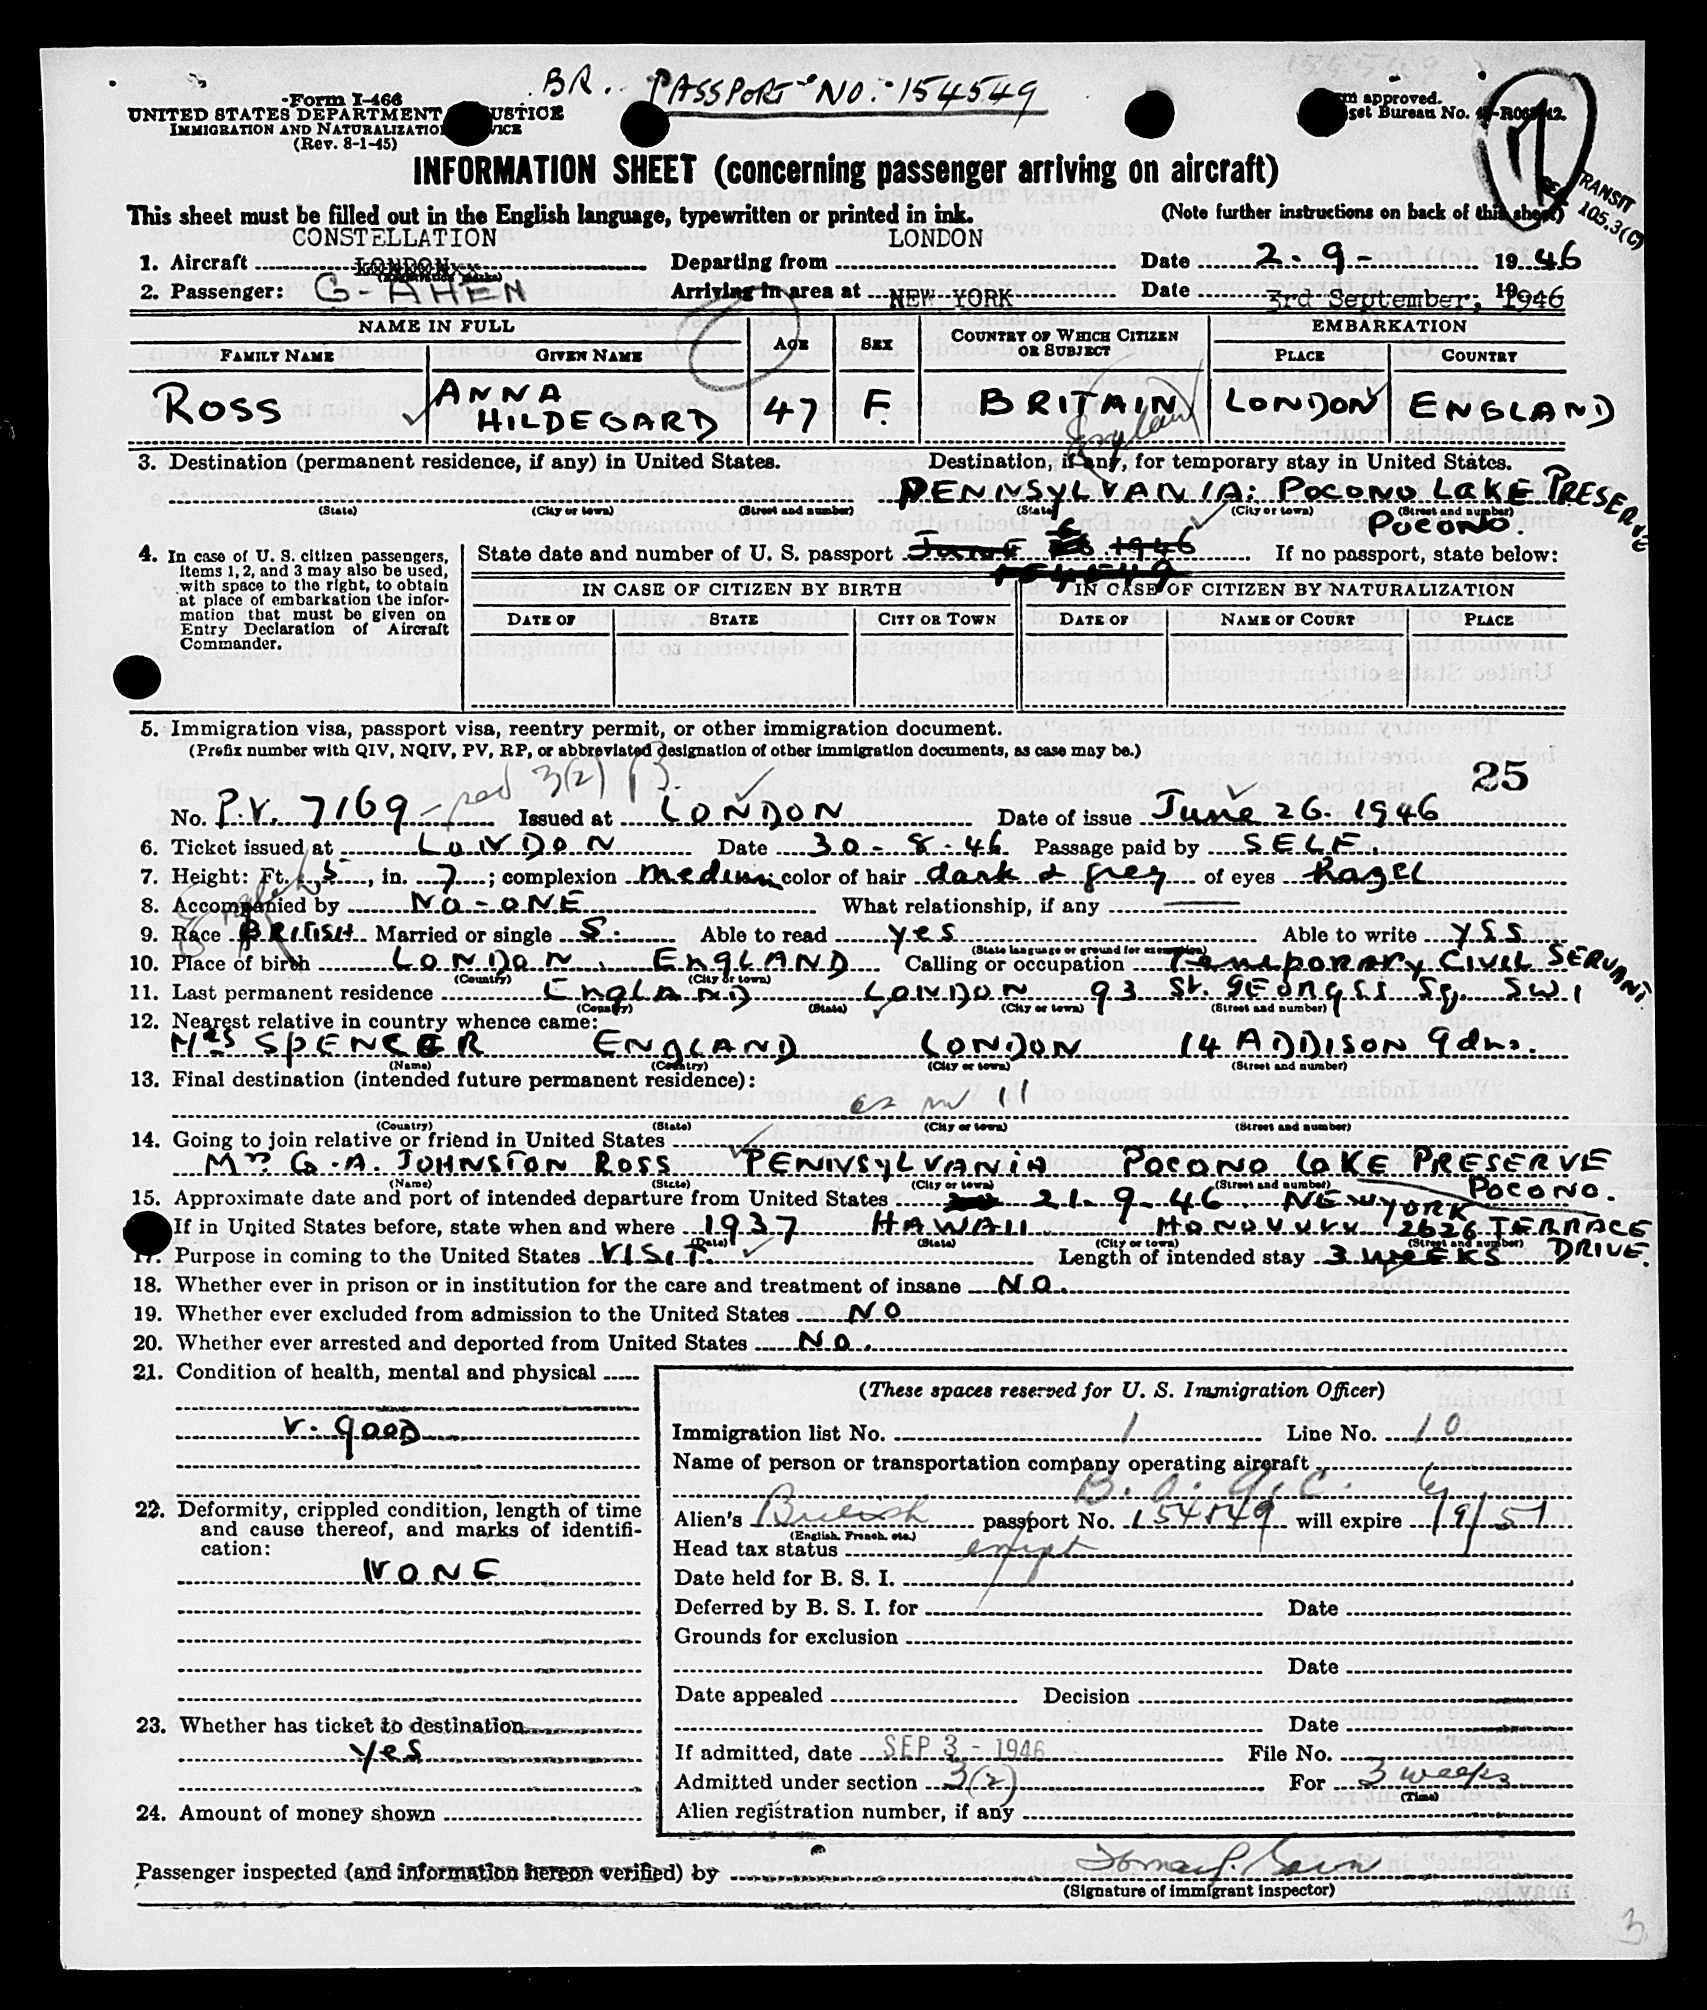 BR. PASSPORT NO. 154549
Form I-466
UNITED STATES DEPARTMENT JUSTICE
IMMIGRATION AND NATURALIZATION
(Rev. 8-1-45)
approved.
Bureau No.
1
TRANSIT
105.3(C)
INFORMATION SHEET (concerning passenger arriving on aircraft)
This sheet must be filled out in the English language, typewritten or printed in ink. (Note further instructions on back of this sheet)
CONSTELLATION LONDON
1. Aircraft LONDON Departing from Date 2-9- 1946
2. Passenger: G-AHEN Arriving in area at NEW YORK Date 3rd September, 1946
NAME IN FULL AGE SEX COUNTRY OF WHICH CITIZEN OR SUBJECT EMBARKATION
FAMILY NAME GIVEN NAME PLACE COUNTRY
ROSS ANNA HILDEGARD 47 F. BRITAIN LONDON ENGLAND
England
3. Destination (permanent residence, if any) in United States. Destination, if any, for temporary stay in United States.
PENNSYLVANIA: POCONO LAKE PRESERVE
(State) (City or town) (Street and number) (State) (City or town) (Street and number)
POCONO.
4. In case of U. S. citizen passengers, items 1, 2, and 3 may also be used, with space to the right, to obtain at place of embarkation the information that must be given on Entry Declaration of Aircraft Commander.
State date and number of U. S. passport 1946 If no passport, state below:
154549
IN CASE OF CITIZEN BY BIRTH IN CASE OF CITIZEN BY NATURALIZATION
DATE OF STATE CITY OR TOWN DATE OF NAME OF COURT PLACE
5. Immigration visa, passport visa, reentry permit, or other immigration document.
(Prefix number with QIV, NQIV, PV, RP, or abbreviated designation of other immigration documents, as case may be.)
3(2) 25
No. P.V. 7169 Issued at LONDON Date of issue June 26. 1946
6. Ticket issued at LONDON Date 30-8-46 Passage paid by SELF.
7. Height: Ft. 5, in. 7; complexion medium color of hair dark & grey of eyes hazel
English
8. Accompanied by NO-ONE What relationship, if any
9. Race BRITISH Married or single S. Able to read yes Able to write yes
(State language or ground for exemption)
10. Place of birth LONDON. ENGLAND Calling or occupation Temporary Civil SERVANT
(Country) (City or town)
11. Last permanent residence ENGLAND LONDON 93 St. GEORGES Sq. SW1
(Country) (State) (City or town) (Street and number)
12. Nearest relative in country whence came:
MRS SPENCER ENGLAND LONDON 14 ADDISON gdns.
(Name) (Country) (City or town) (Street and number)
13. Final destination (intended future permanent residence):
as in 11
(Country) (State) (City or town) (Street and number)
14. Going to join relative or friend in United States
G.A. JOHNSTON ROSS PENNSYLVANIA POCONO LAKE PRESERVE
(Name) (State) (City or town) (Street and number)
POCONO.
15. Approximate date and port of intended departure from United States 21-9-46. NEW YORK
If in United States before, state when and where 1937 HAWAII HONOLULU 2626 TERRACE DRIVE.
(Date) (State) (City or town) (Street and number)
17. Purpose in coming to the United States VISIT. Length of intended stay 3 WEEKS
18. Whether ever in prison or in institution for the care and treatment of insane NO.
19. Whether ever excluded from admission to the United States NO
20. Whether ever arrested and deported from United States NO.
21. Condition of health, mental and physical
V. good
22. Deformity, crippled condition, length of time and cause thereof, and marks of identification:
NONE
23. Whether has ticket to destination
yes
24. Amount of money shown
(These spaces reserved for U. S. Immigration Officer)
Immigration list No. 1 Line No. 10
Name of person or transportation company operating aircraft
B.O.A.C.
Alien's British passport No. 154549 will expire 6/19/51
(English, French, etc.)
Head tax status exempt
Date held for B. S. I.
Deferred by B. S. I. for Date
Grounds for exclusion
Date
Date appealed Decision
Date
If admitted, date SEP 3 - 1946 File No.
Admitted under section 3(2) For 3 weeks
(Time)
Alien registration number, if any
Passenger inspected (and information hereon verified) by
(Signature of immigrant inspector)
3